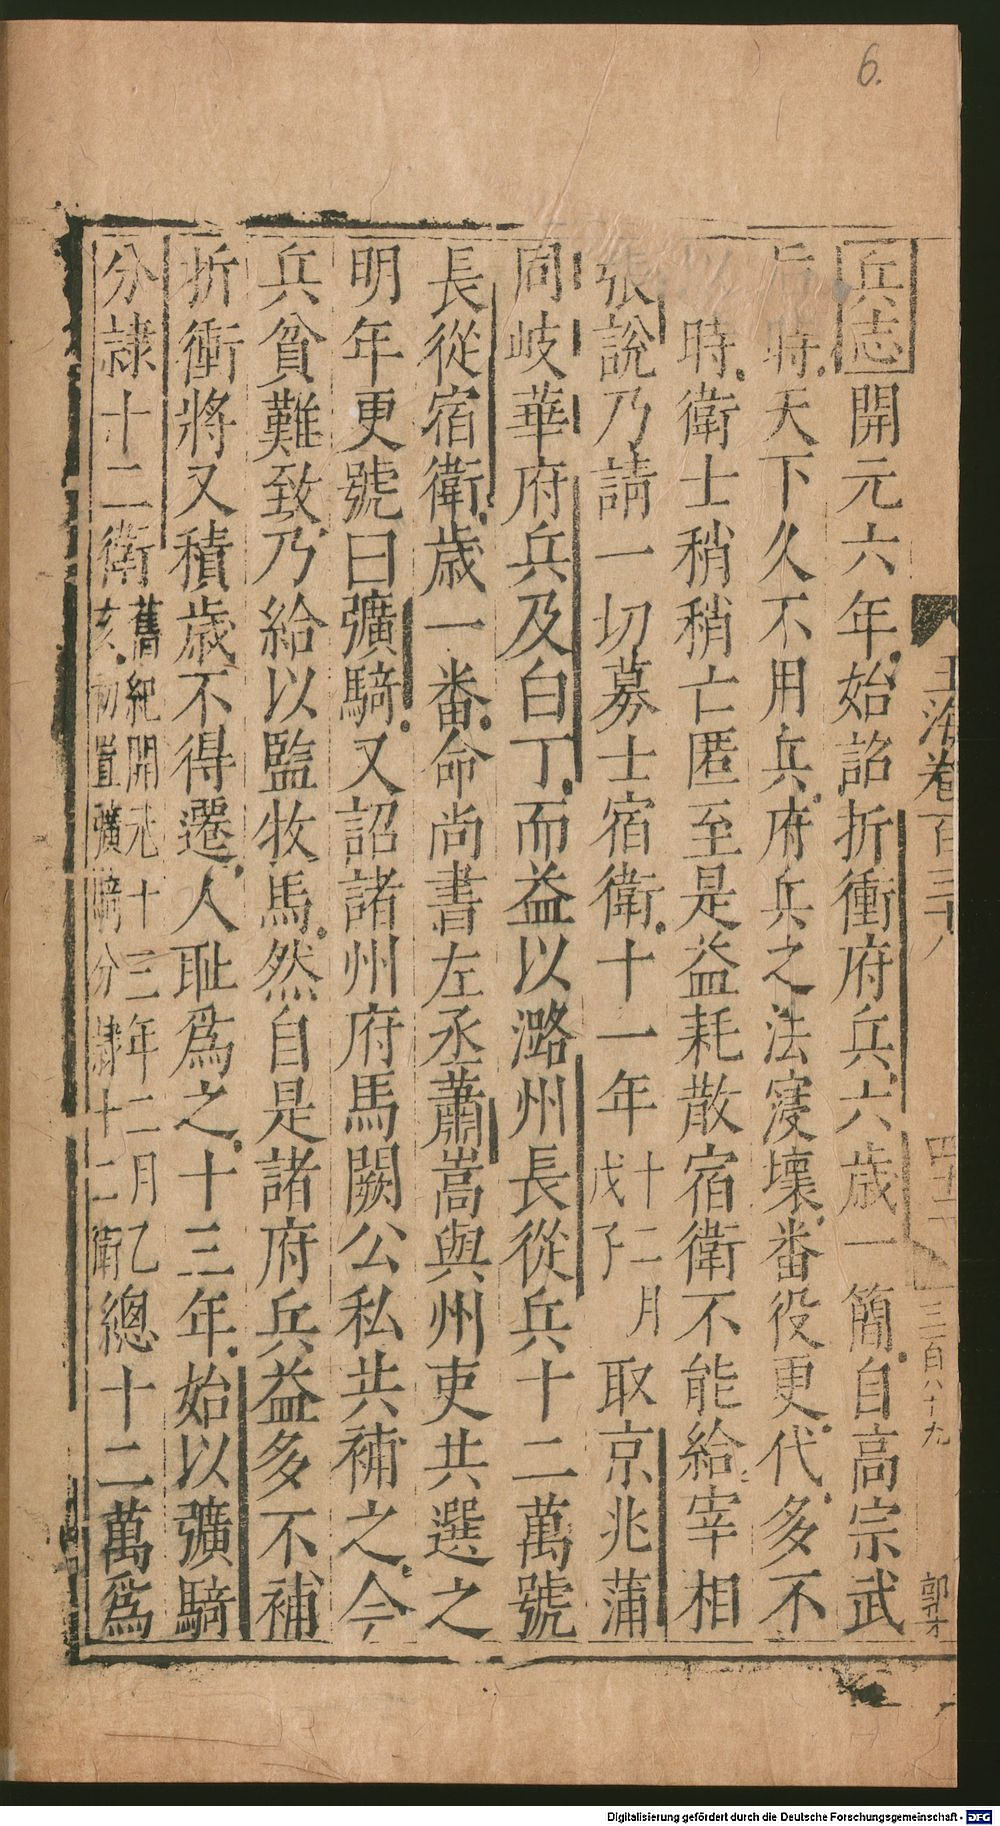 6.
玉海卷百三十八
三百八十九
郭才
兵志開元六年始詔折衝府兵六歲一簡自高宗武
后時天下久不用兵府兵之法寖壞番役更代多不
以時衛士稍稍亡匿至是益耗散宿衛不能給宰相
張說乃請一切募士宿衛十一年十二月戊子取京兆蒲
同岐華府兵及白丁而益以潞州長從兵十二萬號
長從宿衛歲一番命尚書左丞蕭嵩與州吏共選之
明年更號曰彍騎又詔諸州府馬闕公私共補之今
兵貧難致乃給以監牧馬然自是諸府兵益多不補
折衝將又積歲不得遷人耻爲之十三年始以彍騎
分隸十二衛舊紀開元十三年二月乙亥初置彍騎分隸十二衛總十二萬爲
Digitalisierung gefördert durch die Deutsche Forschungsgemeinschaft - DFG